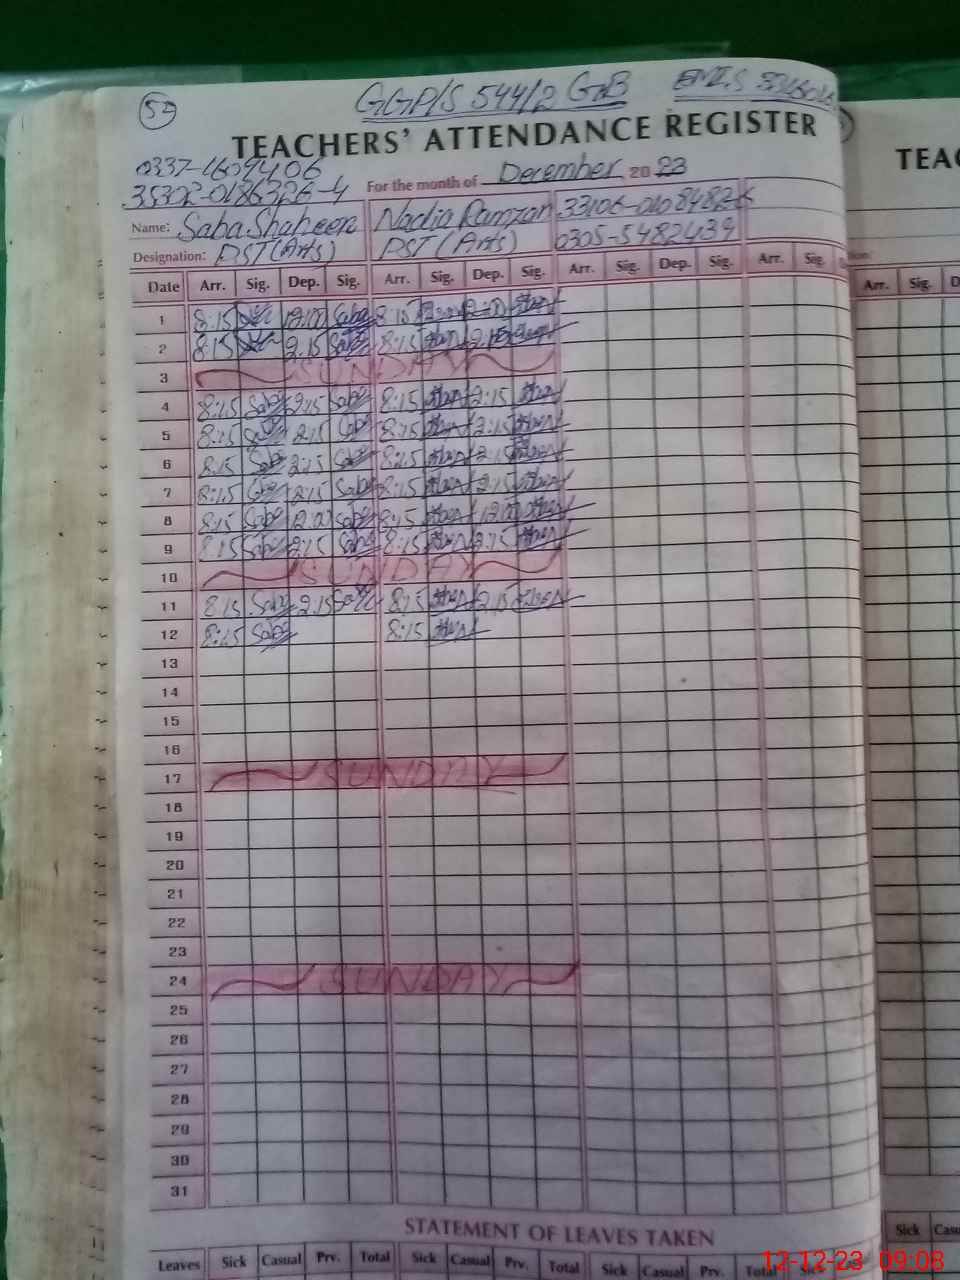 52
GGP/S 544/2 GB EMIS
TEACHERS' ATTENDANCE REGISTER
TEAC
0337-1609406
35302-0186326-4
For the month of December 2023
Name: Saba Shaheen Nadia Ramzan 33106-0108482-
Designation: PST (Arts) PST (Arts) 0305-5482439
Date Arr. Sig. Dep. Sig. Arr. Sig. Dep. Sig. Arr. Sig. Dep. Sig. Arr. Sig. Arr. Sig. D
1 8:15 12:00 Saba 8:15
2 8:15 2:15 8:15 2:15
3 SUNDAY
4 8:15 Saba 2:15 Saba 8:15 2:15
5 8:15 2:15 8:15 2:15
6 8:15 Sab 2:15 8:15 2:15
7 8:15 2:15 Saba 8:15 2:15
8 8:15 Saba 12:00 Saba 8:15 12:00
9 8:15 Saba 2:15 Saba 8:15 2:15
10 SUNDAY
11 8:15 Saba 2:15 Saba 8:15 2:15
12 8:15 Saba 8:15
13
14
15
16
17 SUNDAY
18
19
20
21
22
23
24 SUNDAY
25
26
27
28
29
30
31
STATEMENT OF LEAVES TAKEN
Leaves Sick Casual Prv. Total Sick Casual Prv. Total Sick Casual Prv. Total Sick Cas Sick Casu
12-12-23 09:08